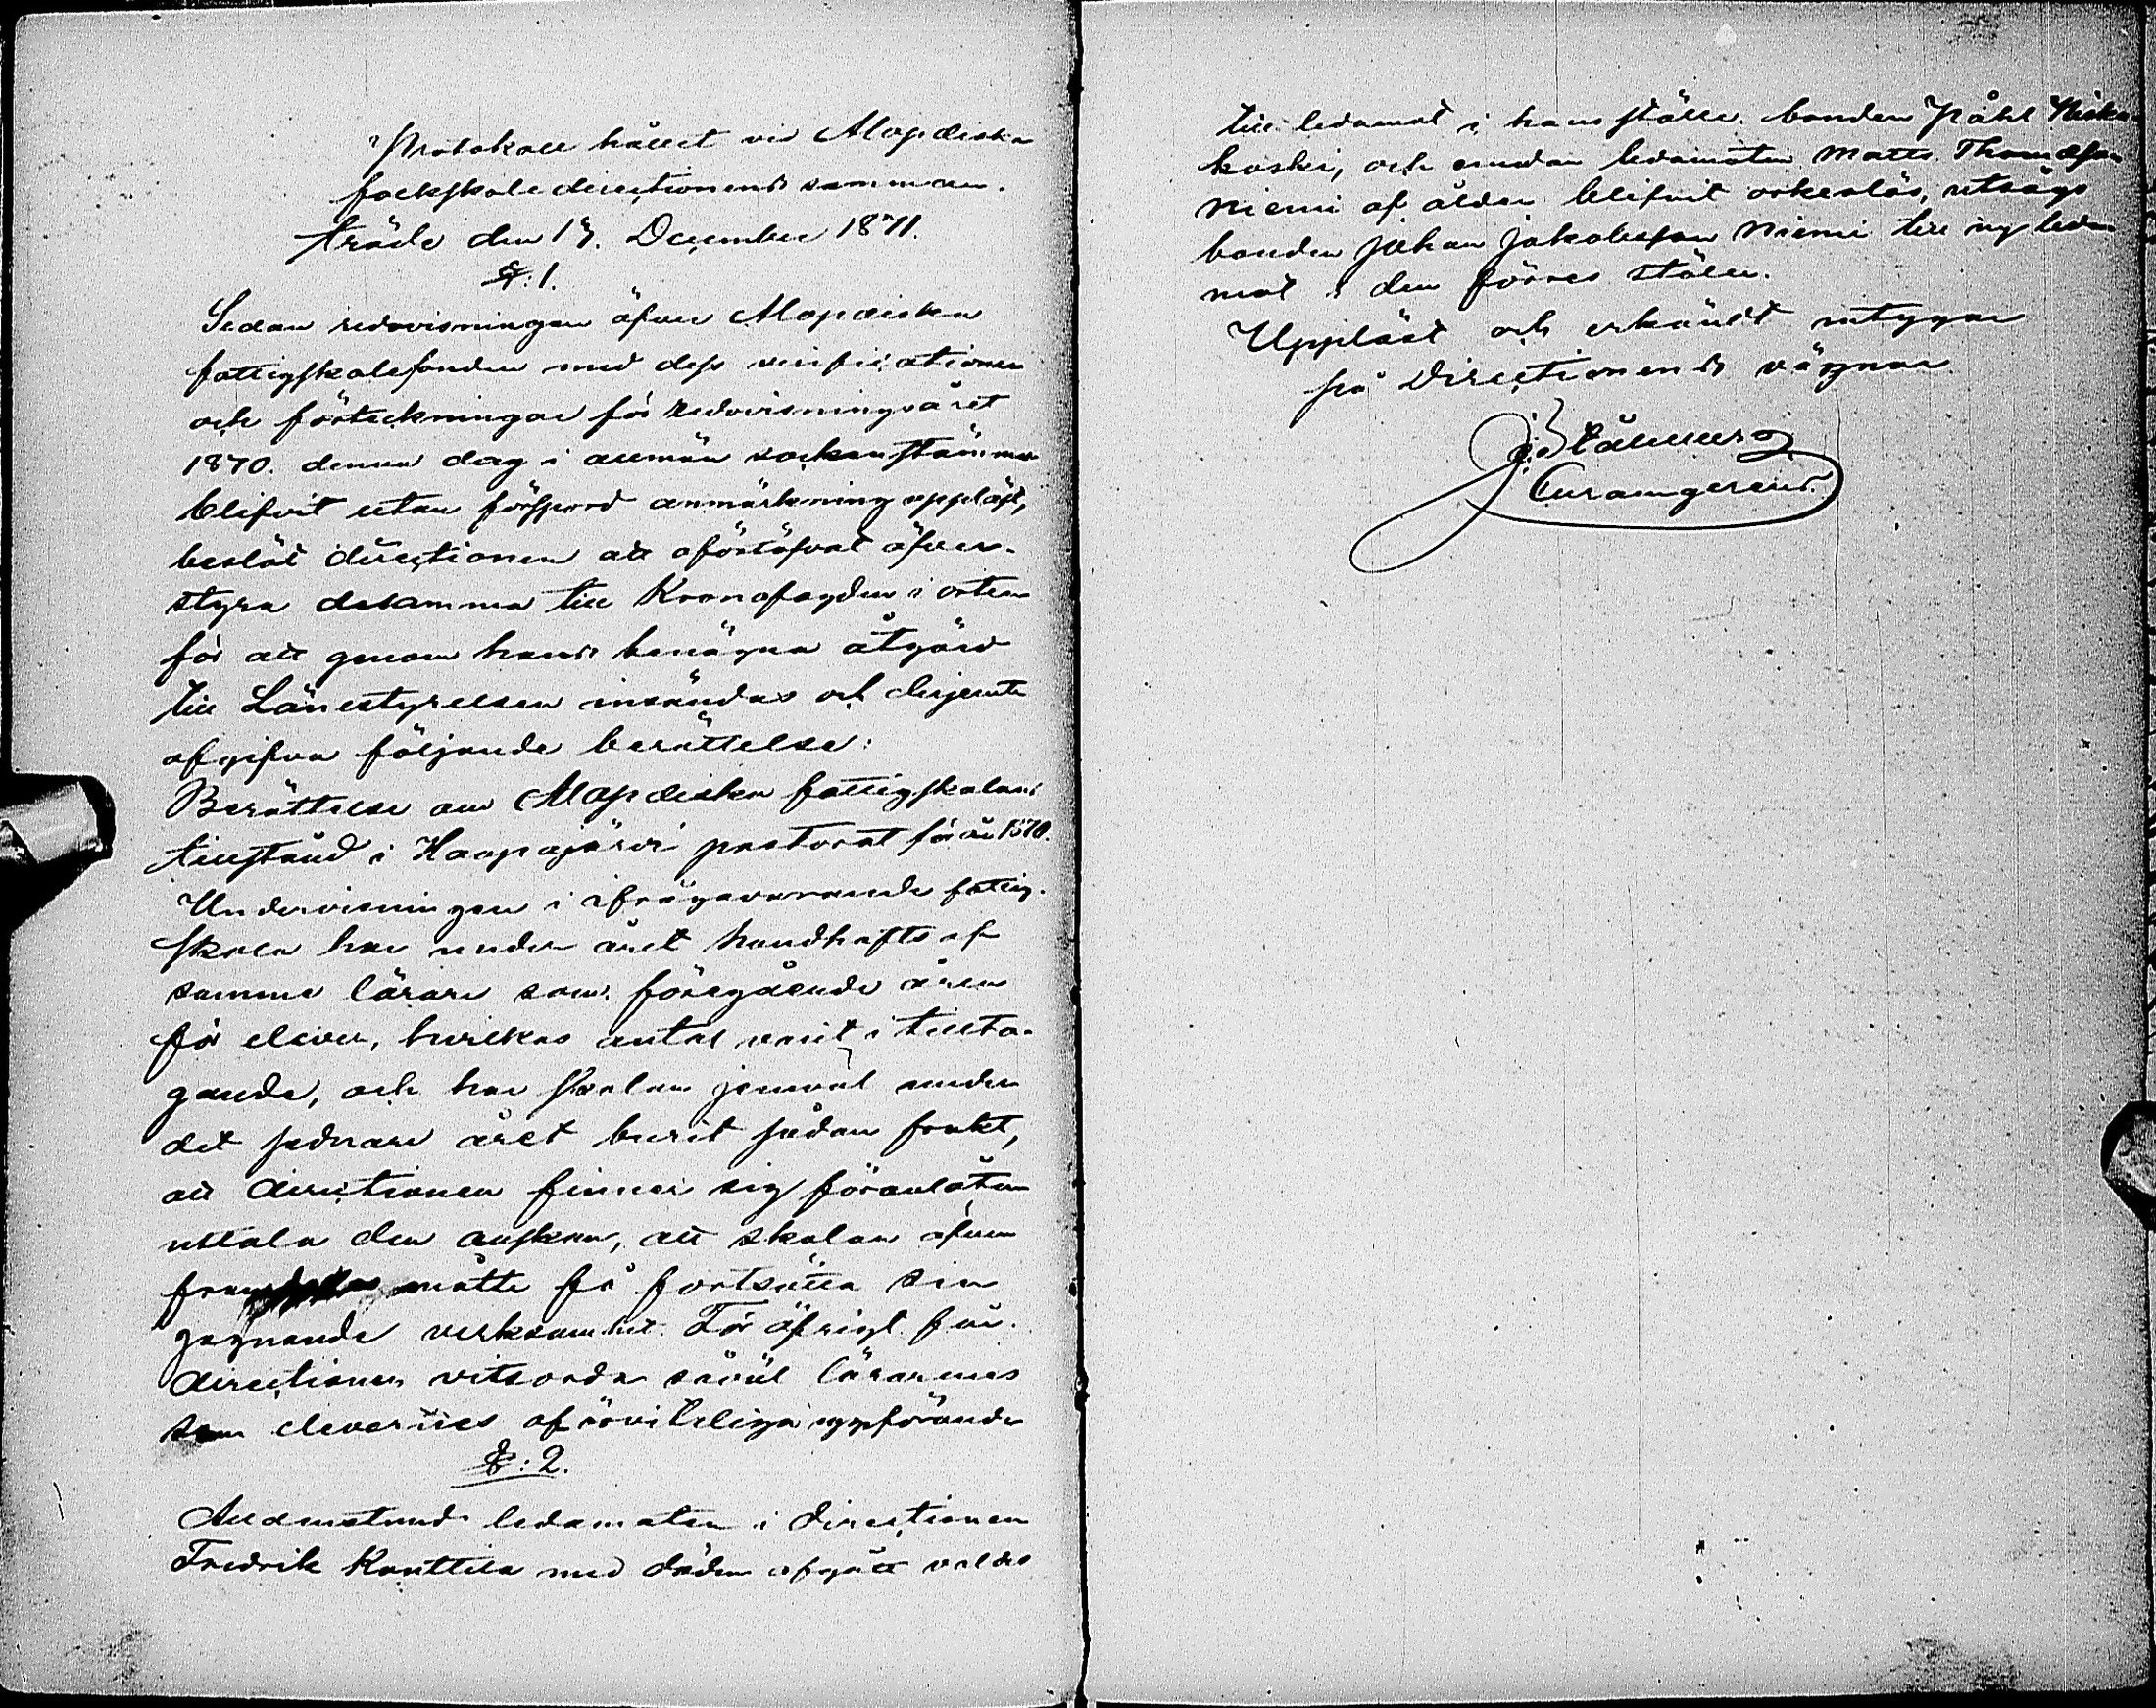 Protokoll hållet vid Alopæiska
folkskoledirectionens samman-
träde den 17. December 1871.
§:1.
Sedan redovisningen öfver Alopæiska
fattigskolefonden med dess verificationer
och förteckningar för redovisningsåret
1870. denna dag i allmän sockenstämma
blifvit utan förspord anmärkning uppläst,
beslöt directionen att oförtöfvat öfver-
styra desamma till Kronofogden i orten
för att genom hans benägna åtgärd
till Länestyrelsen insändas och derjemte
afgifva följande berättelse:
Berättelse om Alopæiska fattigskolans
tillstånd i Haapajärvi pastorat för år 1870.
Undervisningen i ifrågavarande fattig-
skola har under året handhafts af
samme lärare som föregående åren
för elever, hvilkas antal varit i tillta-
gande, och har skolan jemväl under
det sednare året burit sådan frukt,
att directionen finner sig föranlåten
uttala den önskan, att skolan äfven
måtte få fortsätta sin
gagnande verksamhet. För öfrigt får
directionen vitsorda såväl lärarenes
som elevernes oförvitliga uppförande
§:2.
Alldenstund ledamoten i directionen
Fredrik Kanttila med döden afgått valdes
till ledamot i hans ställe bonden Påhl Niska-
koski, och emedan ledamoten Matts Thomasson
Niemi af ålder blifvit orkeslös, utsågs
bonden Johan Jakobsson Niemi till ny leda-
mot i den förres ställe.
Uppläst och erkändt intygar
på Directionens vägnar